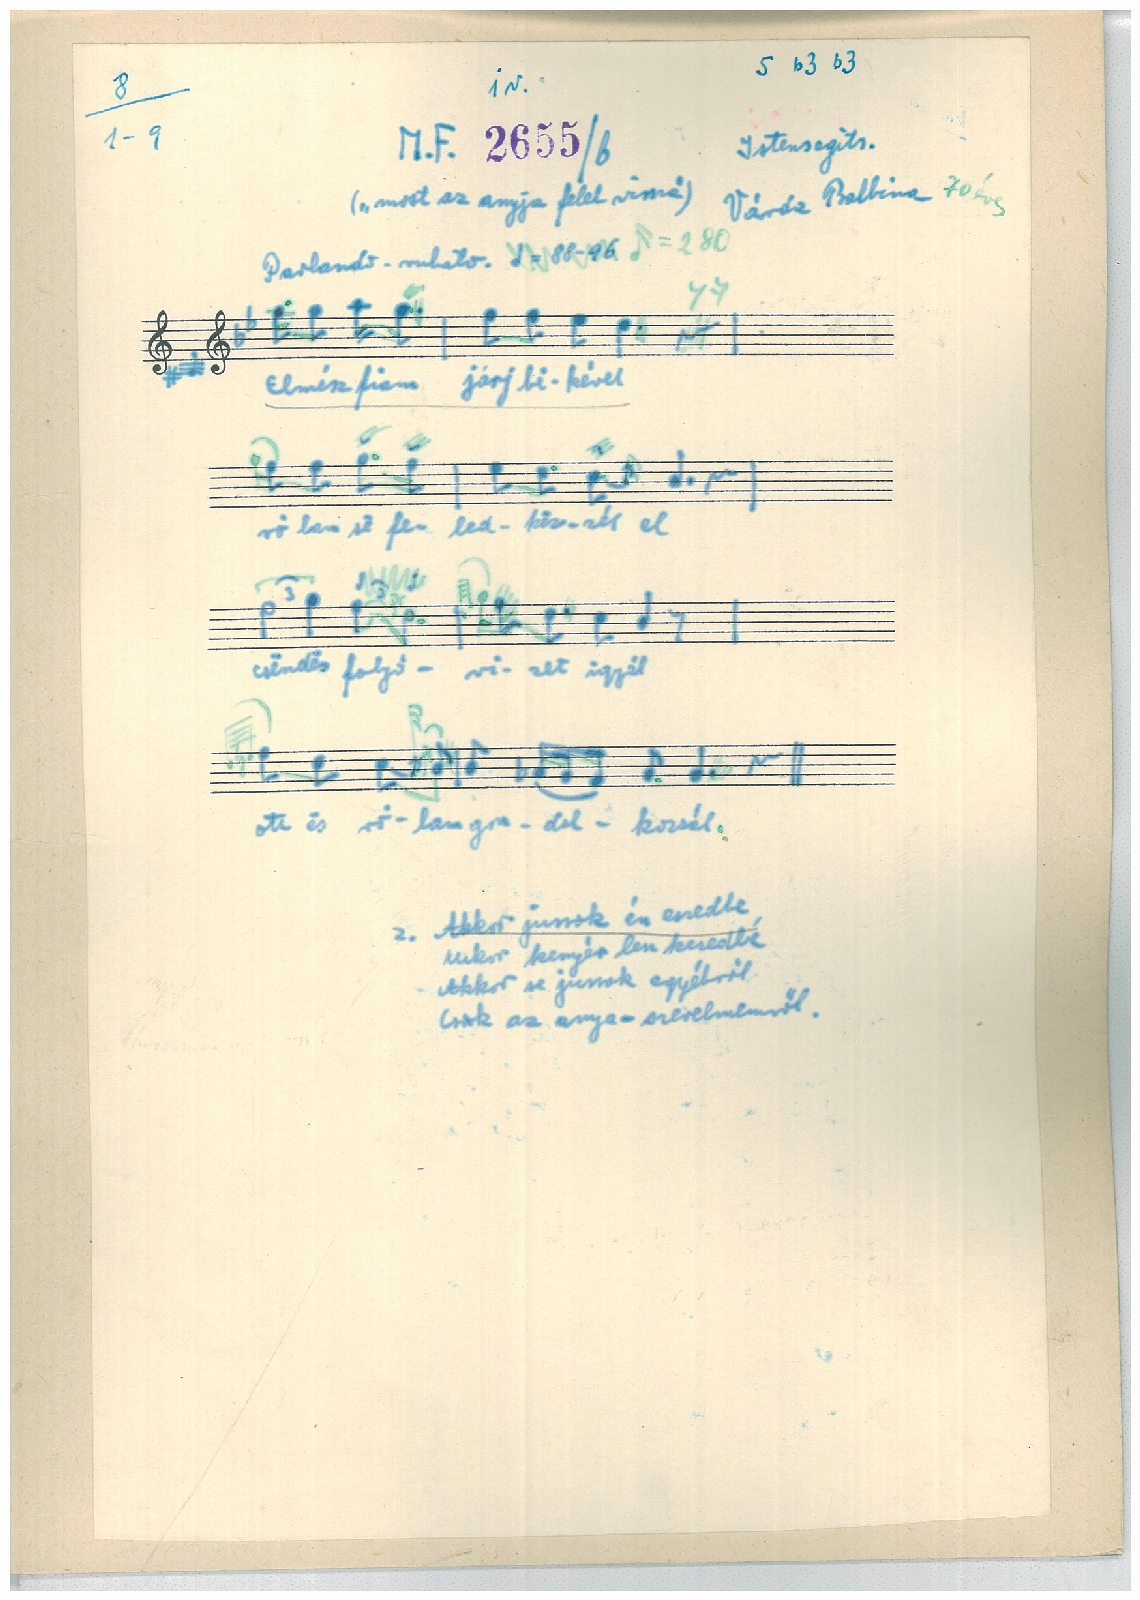 8
1-9
iv.
5 b3 b3
M.F. 2655/b
Istensegits.
("most az anyja felel vissza)
Várda Balbina 70 éves
Parlando-rubato. ♩=88-96 ♪=280
Elmész fiam járj bé-kével
ró lam së fe- led- këz-zél el
3 3
csëndës folyó- vi- zet igyál
ott és ró-lam gon-dol- kozzál.
2. Akkor jussok én eszedbe
Mikor kenyér len kezedbe
Akkor se jussok egyébről
Csak az anya-szerelmemről.